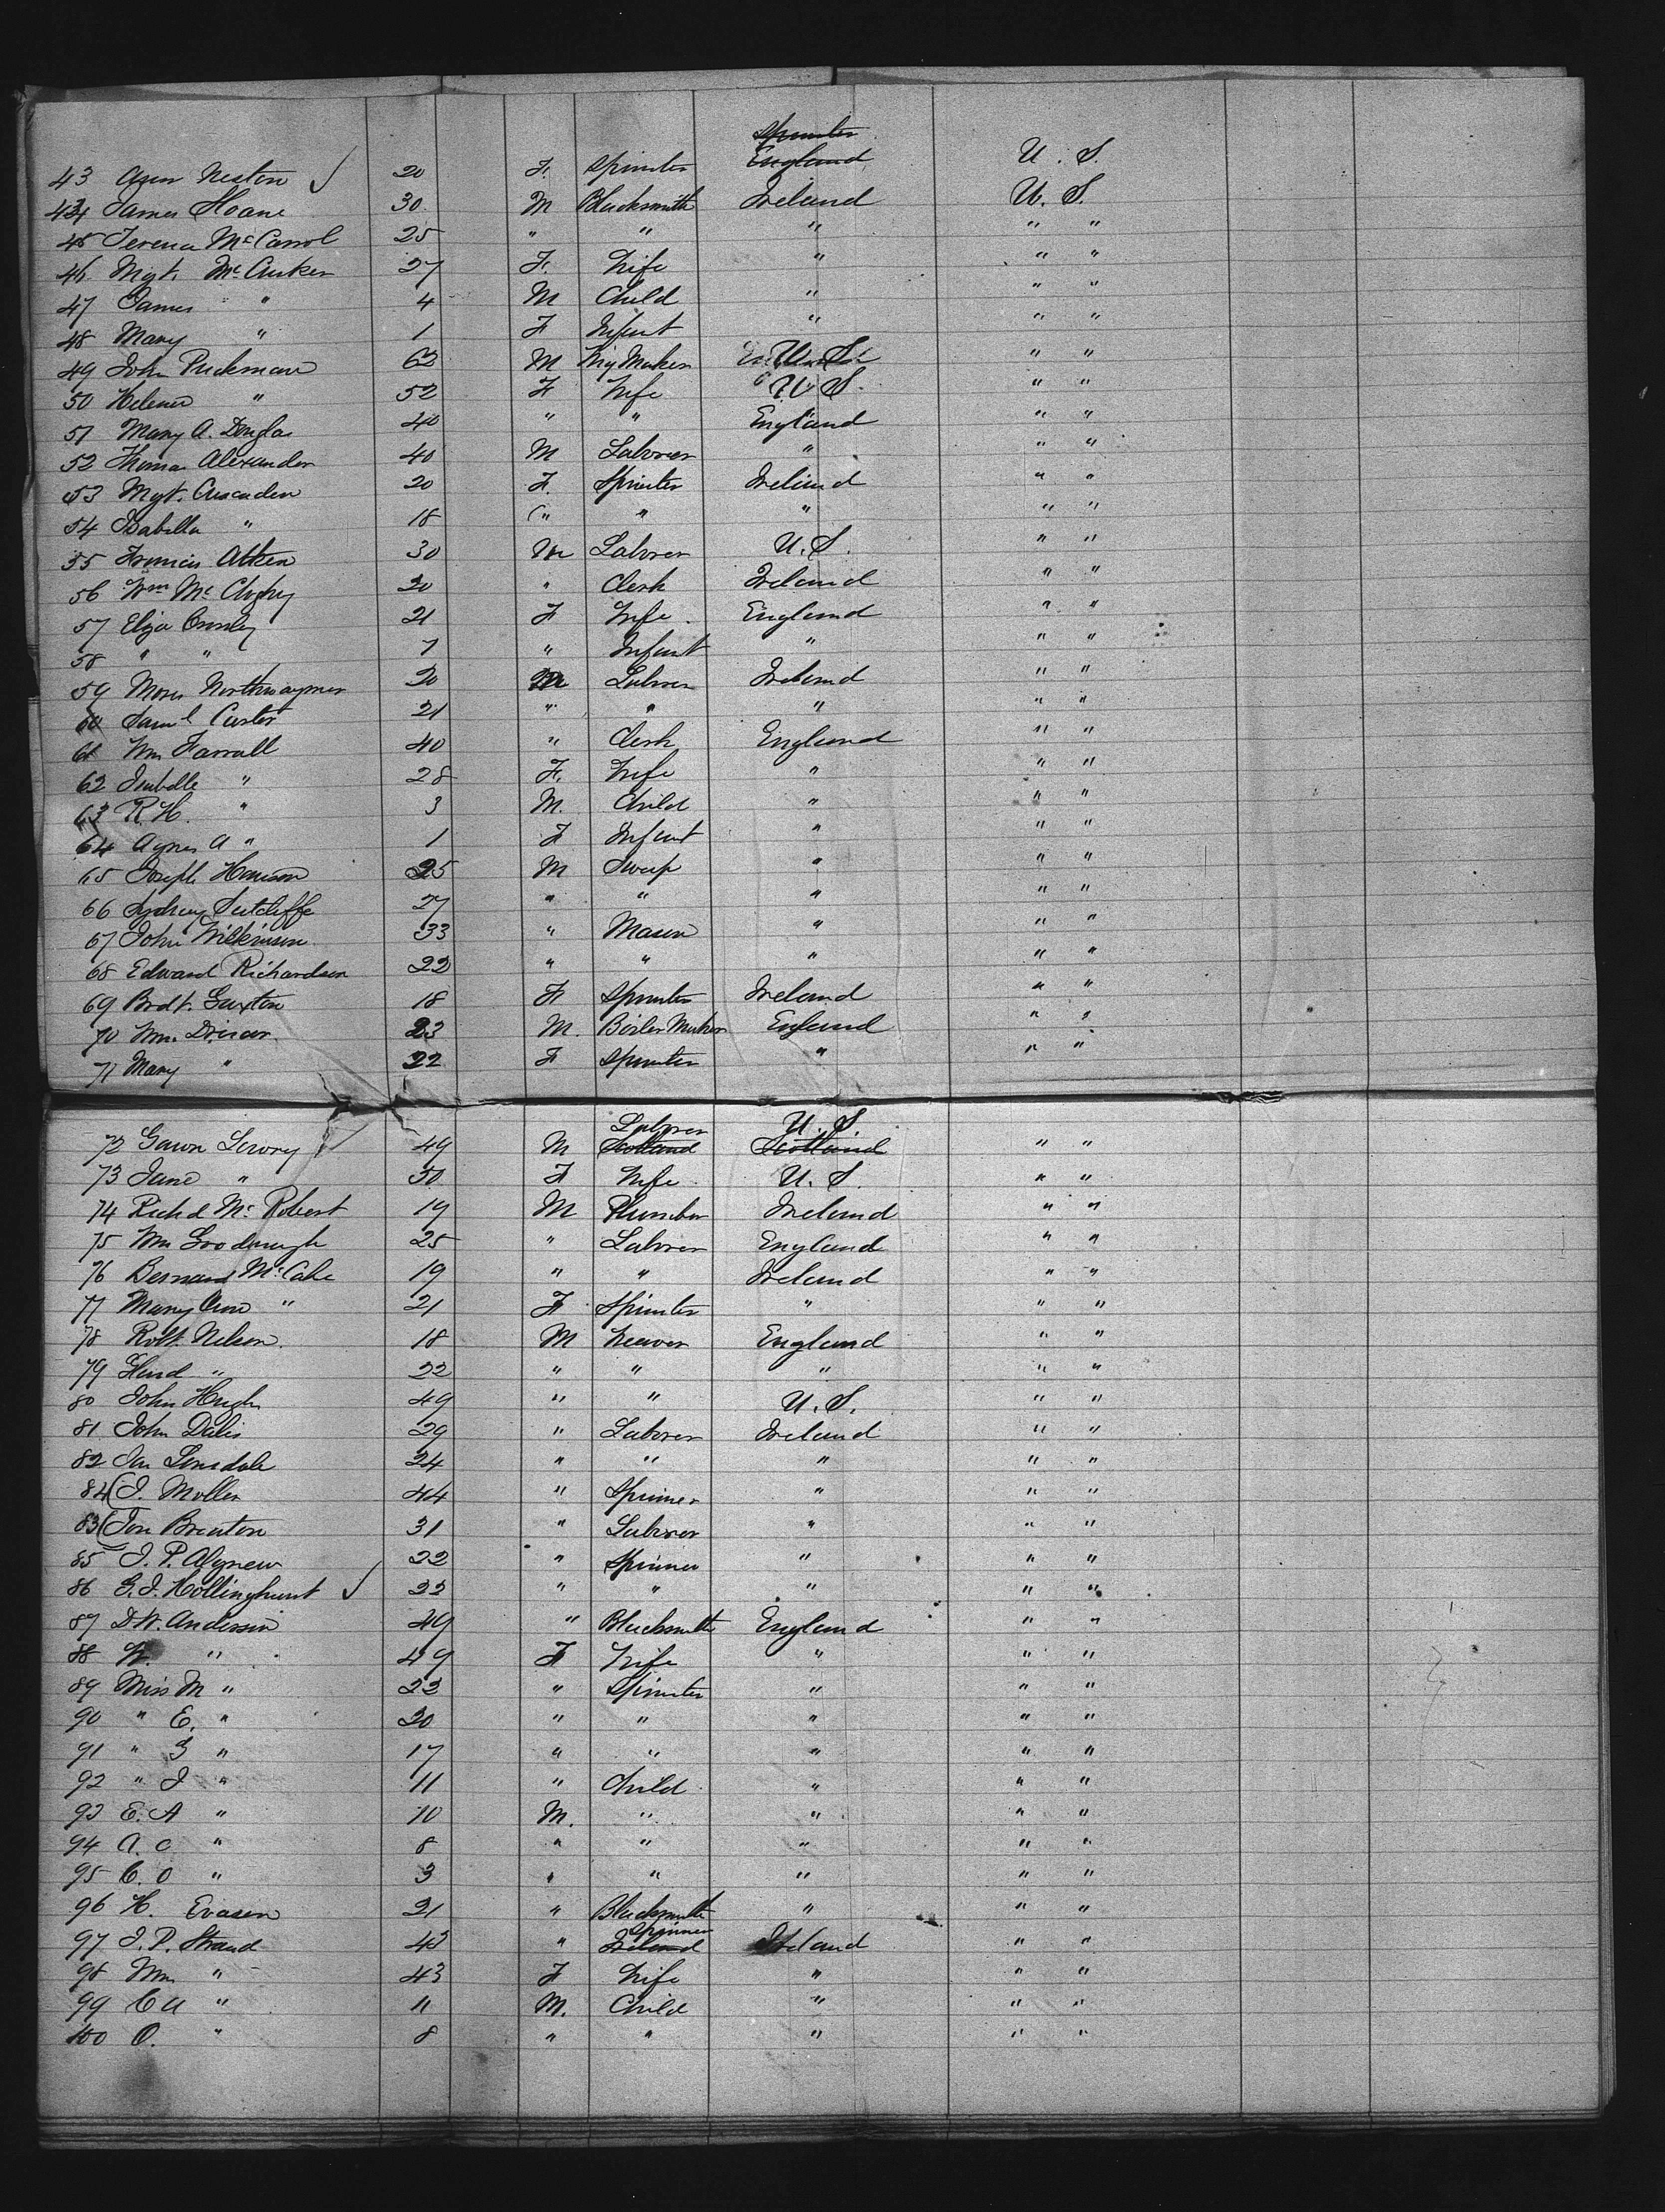 Spinster
43 Agnes Neston ✓ 20 F. Spinster England U. S.
44 James Sloane 30 M Blacksmith Ireland U. S.
45 Terence McCarrol 25 " " " " "
46 Mgt. McCusker 27 F. Wife " " "
47 James " 4 M Child " " "
48 Mary " 1 F Infant " " "
49 John Puckman 62 M Wig Maker U. S. " "
50 Helena " 52 F Wife U S. " "
51 Mary A. Douglas 40 " " England " "
52 Thomas Alexander 40 M Laborer " " "
53 Mgt. Cuscaden 20 F. Spinster Ireland " "
54 Isabella " 18 " " " " "
55 Francis Aitken 30 M Laborer U. S. " "
56 Wm Mc 20 " Clerk Ireland " "
57 Eliza Crosley 21 F Wife England " "
58 " " 7 " Infant " " "
59 Moses 20 M Laborer Ireland " "
60 Saml Custer 21 " " " " "
61 Wm Farrall 40 " Clerk England " "
62 Isabelle " 28 F. Wife " " "
63 R. H. " 3 M. Child " " "
64 Agnes A " 1 F Infant " " "
65 Joseph Hanson 25 M Sweep " " "
66 Sydney Sutcliffe 27 " " " " "
67 John Wilkinson 33 " Mason " " "
68 Edward Richardson 22 " " " " "
69 Brdt. Guxton 18 F Spinster Ireland " "
70 Wm. Driver 23 M. Boiler Maker England " "
71 Mary " 22 F Spinster " " "
Laborer U. S.
72 Gawn Lowry 49 M Scotland Scotland " "
73 Jane " 50 F Wife U. S. " "
74 Richd McRobert 19 M Plumber Ireland " "
75 Wm Goodenough 25 " Laborer England " "
76 Bernard McCabe 19 " " Ireland " "
77 Mary Ann " 21 F Spinster " " "
78 Robt. Nelson 18 M Weaver England " "
79 " 22 " " " " "
80 John Hugh 49 " " U. S. " "
81 John Dalis 29 " Laborer Ireland " "
82 Jas Lonsdale 24 " " " " "
84 J. Moller 44 " Spinner " " "
83 Jon Brenton 31 " Laborer " " "
85 J. P. Agnew 22 " Spinner " " "
86 G. J. Hollinghurst ✓ 22 " " " " "
87 D. W. Anderson 49 " Blacksmith England " "
88 W. " 49 F Wife " " "
89 Miss M " 22 " Spinster " " "
90 " E. " 20 " " " " "
91 " G " 17 " " " " "
92 " J " 11 " Child " " "
93 E. A " 10 M. " " " "
94 A. C " 8 " " " " "
95 C. O " 3 " " " " "
96 H. Evasen 21 " Blacksmith " " "
Spinner
97 J. P. Strand 43 " Ireland Ireland " "
98 Mrs " 43 F Wife " " "
99 C A " 11 M. Child " " "
100 O. " 8 " " " " "